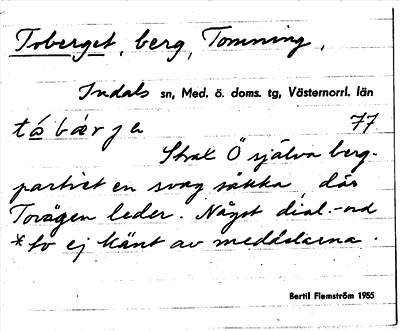 Toberget, berg, Tomming,
Indals sn, Med. ö. doms. tg, Västernorrl. län
tábærja 77
Strax Ö själva berg-
partiet en svag sänka, där
Tovägen leder. Något dial.-ord
*to ej känt av meddelarna.
Bertil Flemström 1955